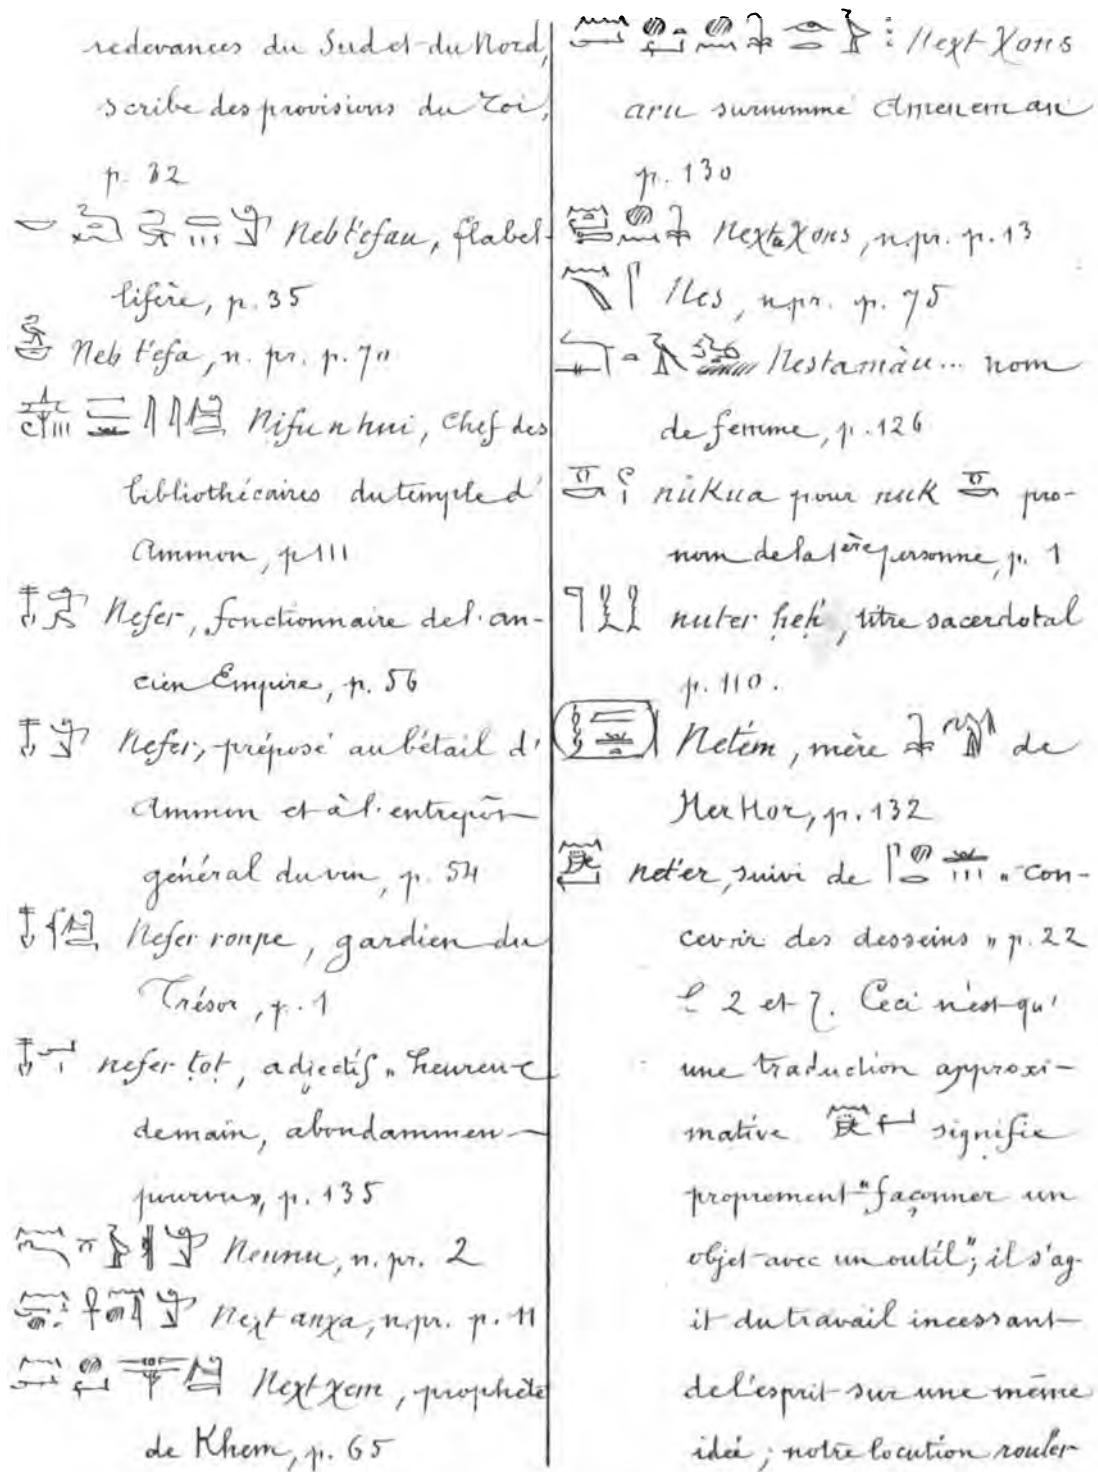 redevances du Sud et du Nord,
scribe des provisions du roi,
p. 32
Neb t'efau, flabel-
lifère, p. 35
Neb t'efa, n. pr. p. 70
Nifu n hui, Chef des
bibliothécaires du temple d'
Ammon, p 111
Nefer, fonctionnaire de l'an-
cien Empire, p. 56
Nefer, préposé au bétail d'
Ammon et à l'entrepôt
général du vin, p. 54
Nefer ronpe, gardien du
Trésor, p. 1
nefer tot, adjectif „ heureux
de main, abondamment
pourvu », p. 135
Nennu, n. pr. 2
Next anχa, n. pr. p. 11
Next χem, prophète
de Khem, p. 65
Next Χons
aru surnommé Amen em an
p. 130
Next Χons, n. pr. p. 13
Nes, n. pr. p. 75
Nestamàu... nom
de femme, p. 126
nukua pour nuk pro-
nom de la 1ère personne, p. 1
nuter ḥeḥ, titre sacerdotal
p. 110.
Netém, mère de
Her Hor, p. 132
net'er, suivi de „ con-
cevoir des desseins „ p. 22
l 2 et 7. Ceci n'est qu'
une traduction approxi-
mative signifie
proprement "façonner un
objet avec un outil"; il s'ag-
it du travail incessant
de l'esprit sur une même
idée; notre locution rouler